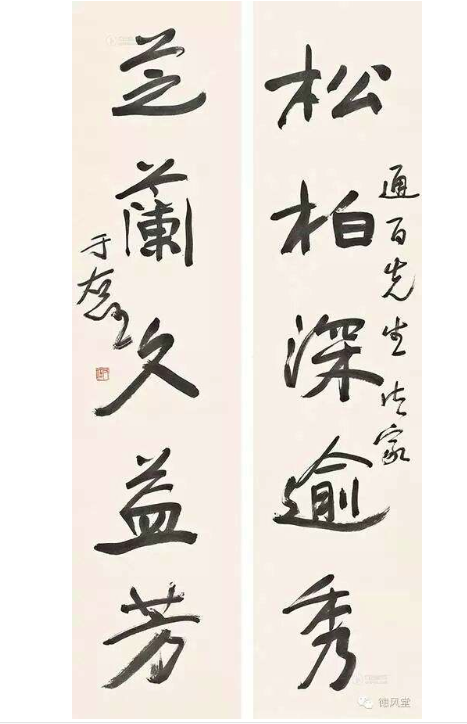 松柏深逾秀
通百先生法家
芝蘭久益芳
于右任
德风堂